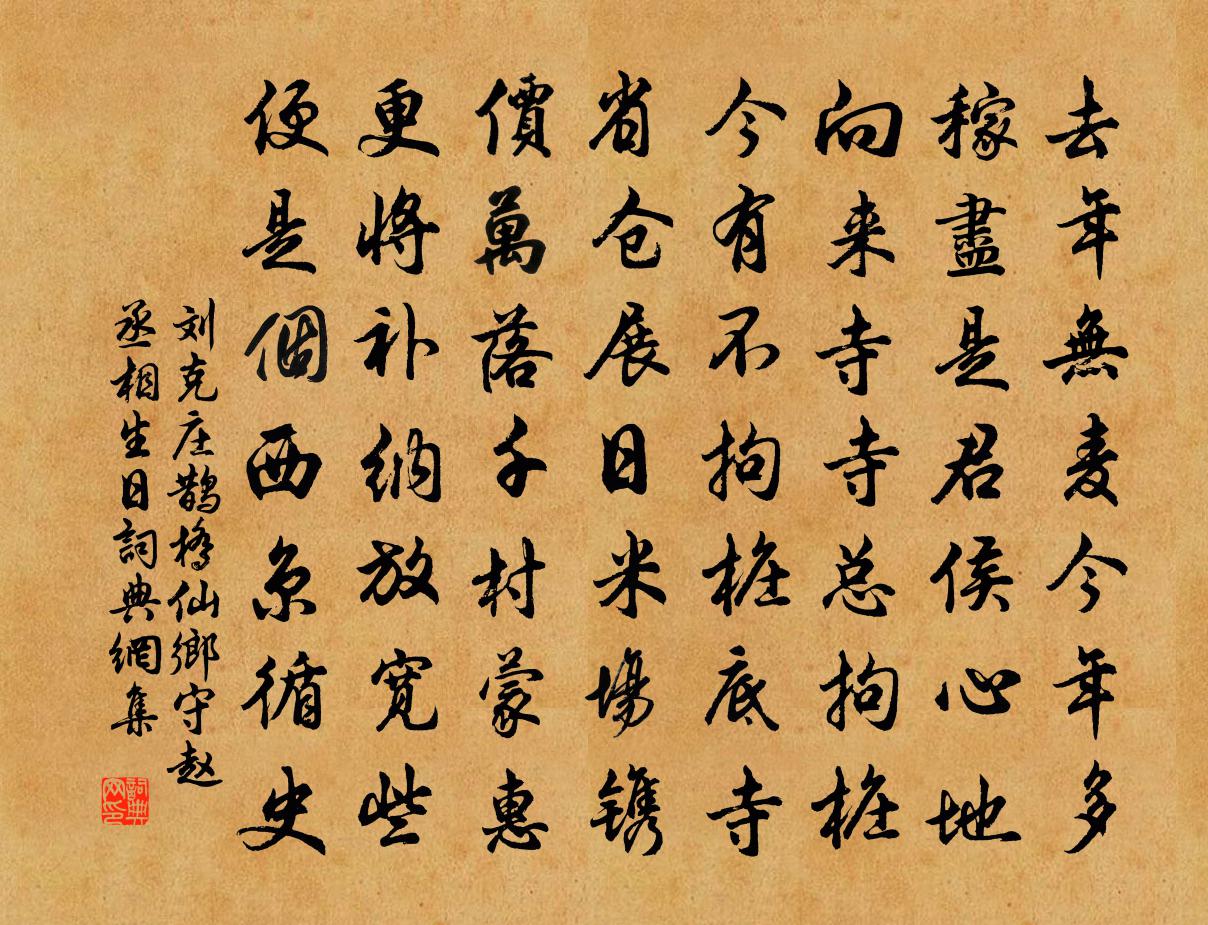 去年無麦今年多
稼盡是君侯心地
向来寺寺总拘榷
今有不拘榷底寺
省仓展日米場镌
價萬落千村蒙惠
更将补纳放宽些
便是個西京循史
刘克庄鹊橋仙鄉守赵
丞相生日詞典網集
詞典網印